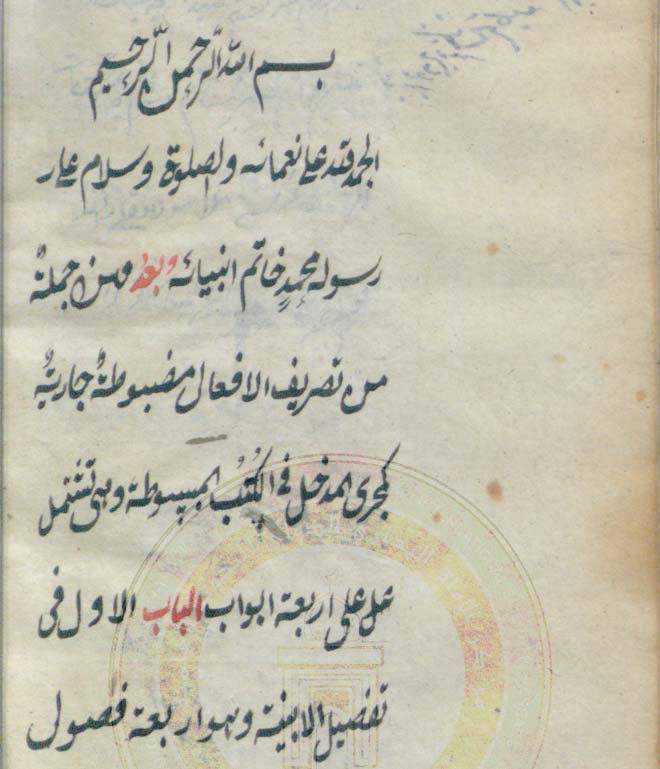 بسم الله الرحمن الرحيم
الحمد لله على نعمائه والصلوة وسلام على
رسوله محمدٍ خاتم انبيائه وبعد فهذه جملةٌ
من تصريف الافعال مضبوطةٌ جاريةٌ
كمجرى المدخل فى الكُتُب المبسوطة وهى تشتمل
على اربعة ابواب الباب الاول فى
تفصيل الابنية وهو اربعة فصول